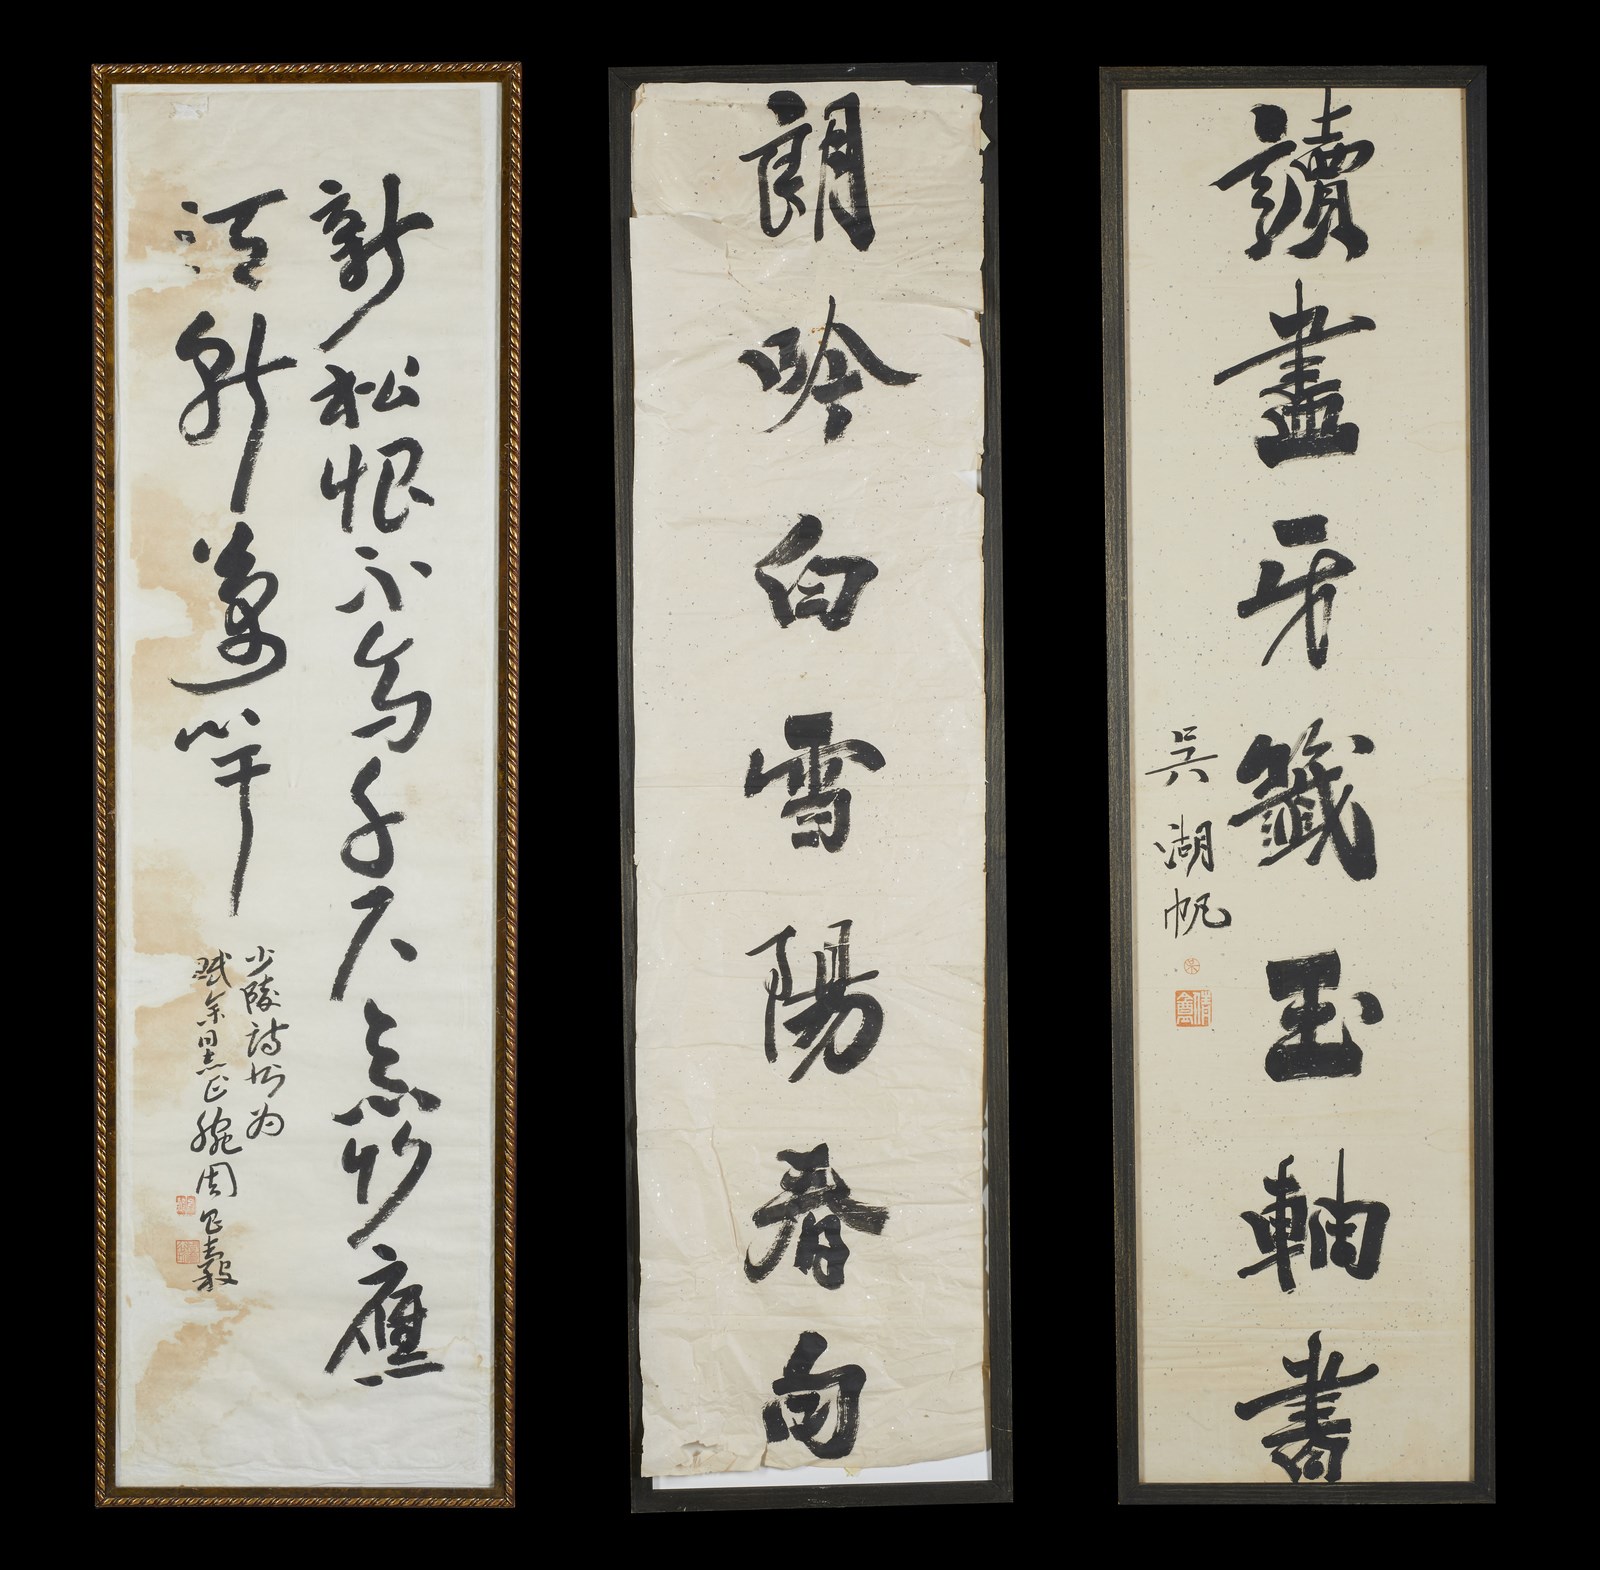 新松恨不高千尺惡竹應
須斬萬竿
少陵詩句为
同志正腕 周昌穀
朗吟白雪陽春句
讀盡牙籤玉軸書
吳湖帆
倩盦